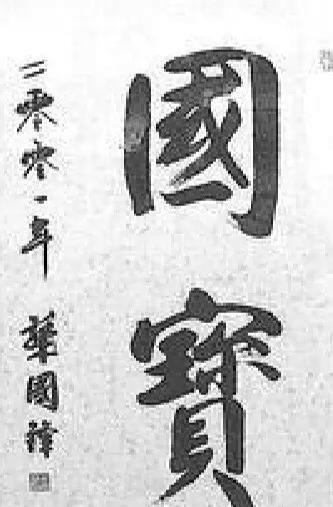 國寳
二零零一年 華國鋒